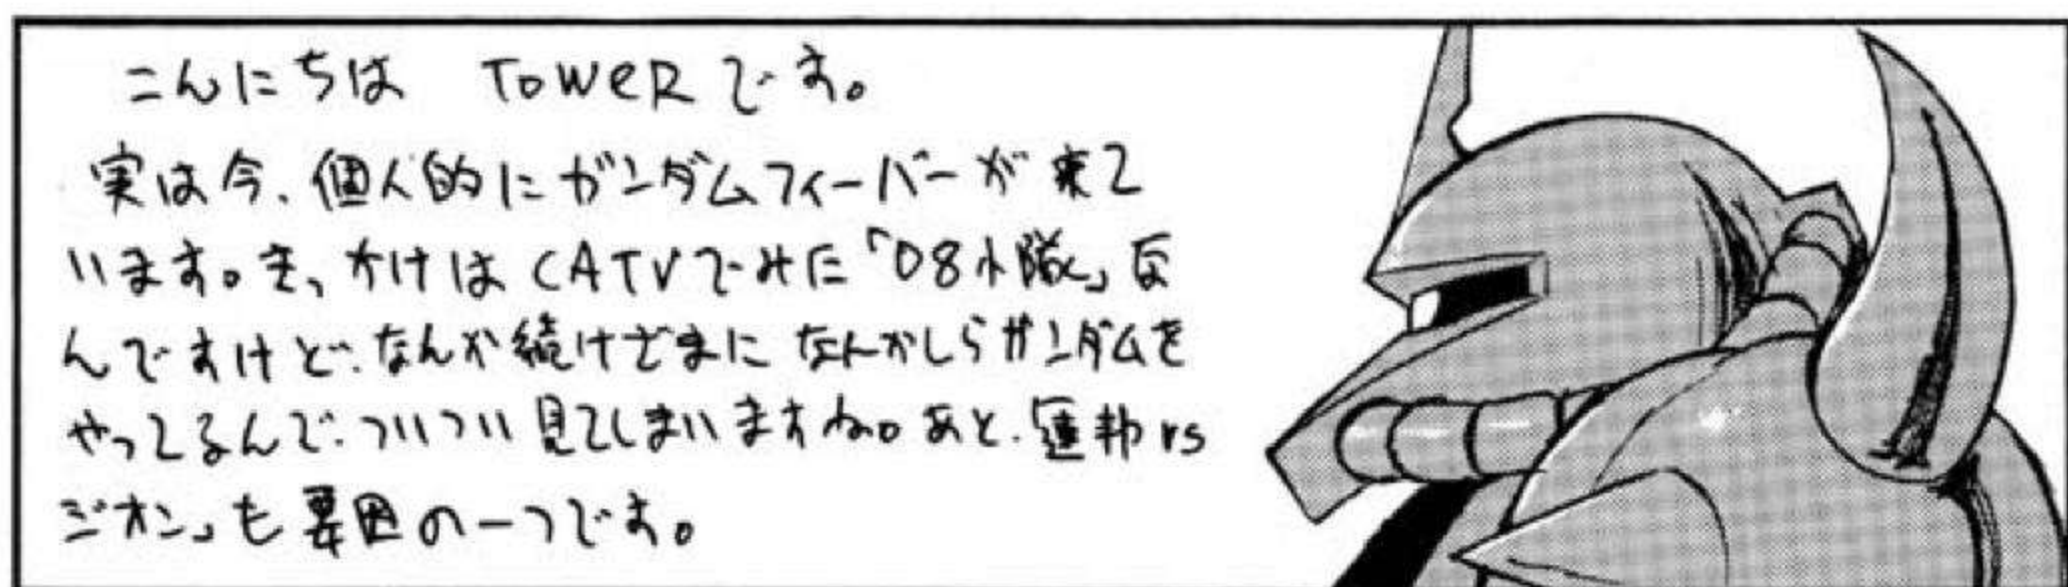 こんにちは TOWeRです。
実は今、個人的にガンダムフィーバーが来て
います。きっかけはCATVでみた「08小隊」な
んですけど、なんか続けざまになんかしらガンダムを
やってるんで、ついつい見てしまいますね。あと、連邦vs
ジオン」も要因の一つです。